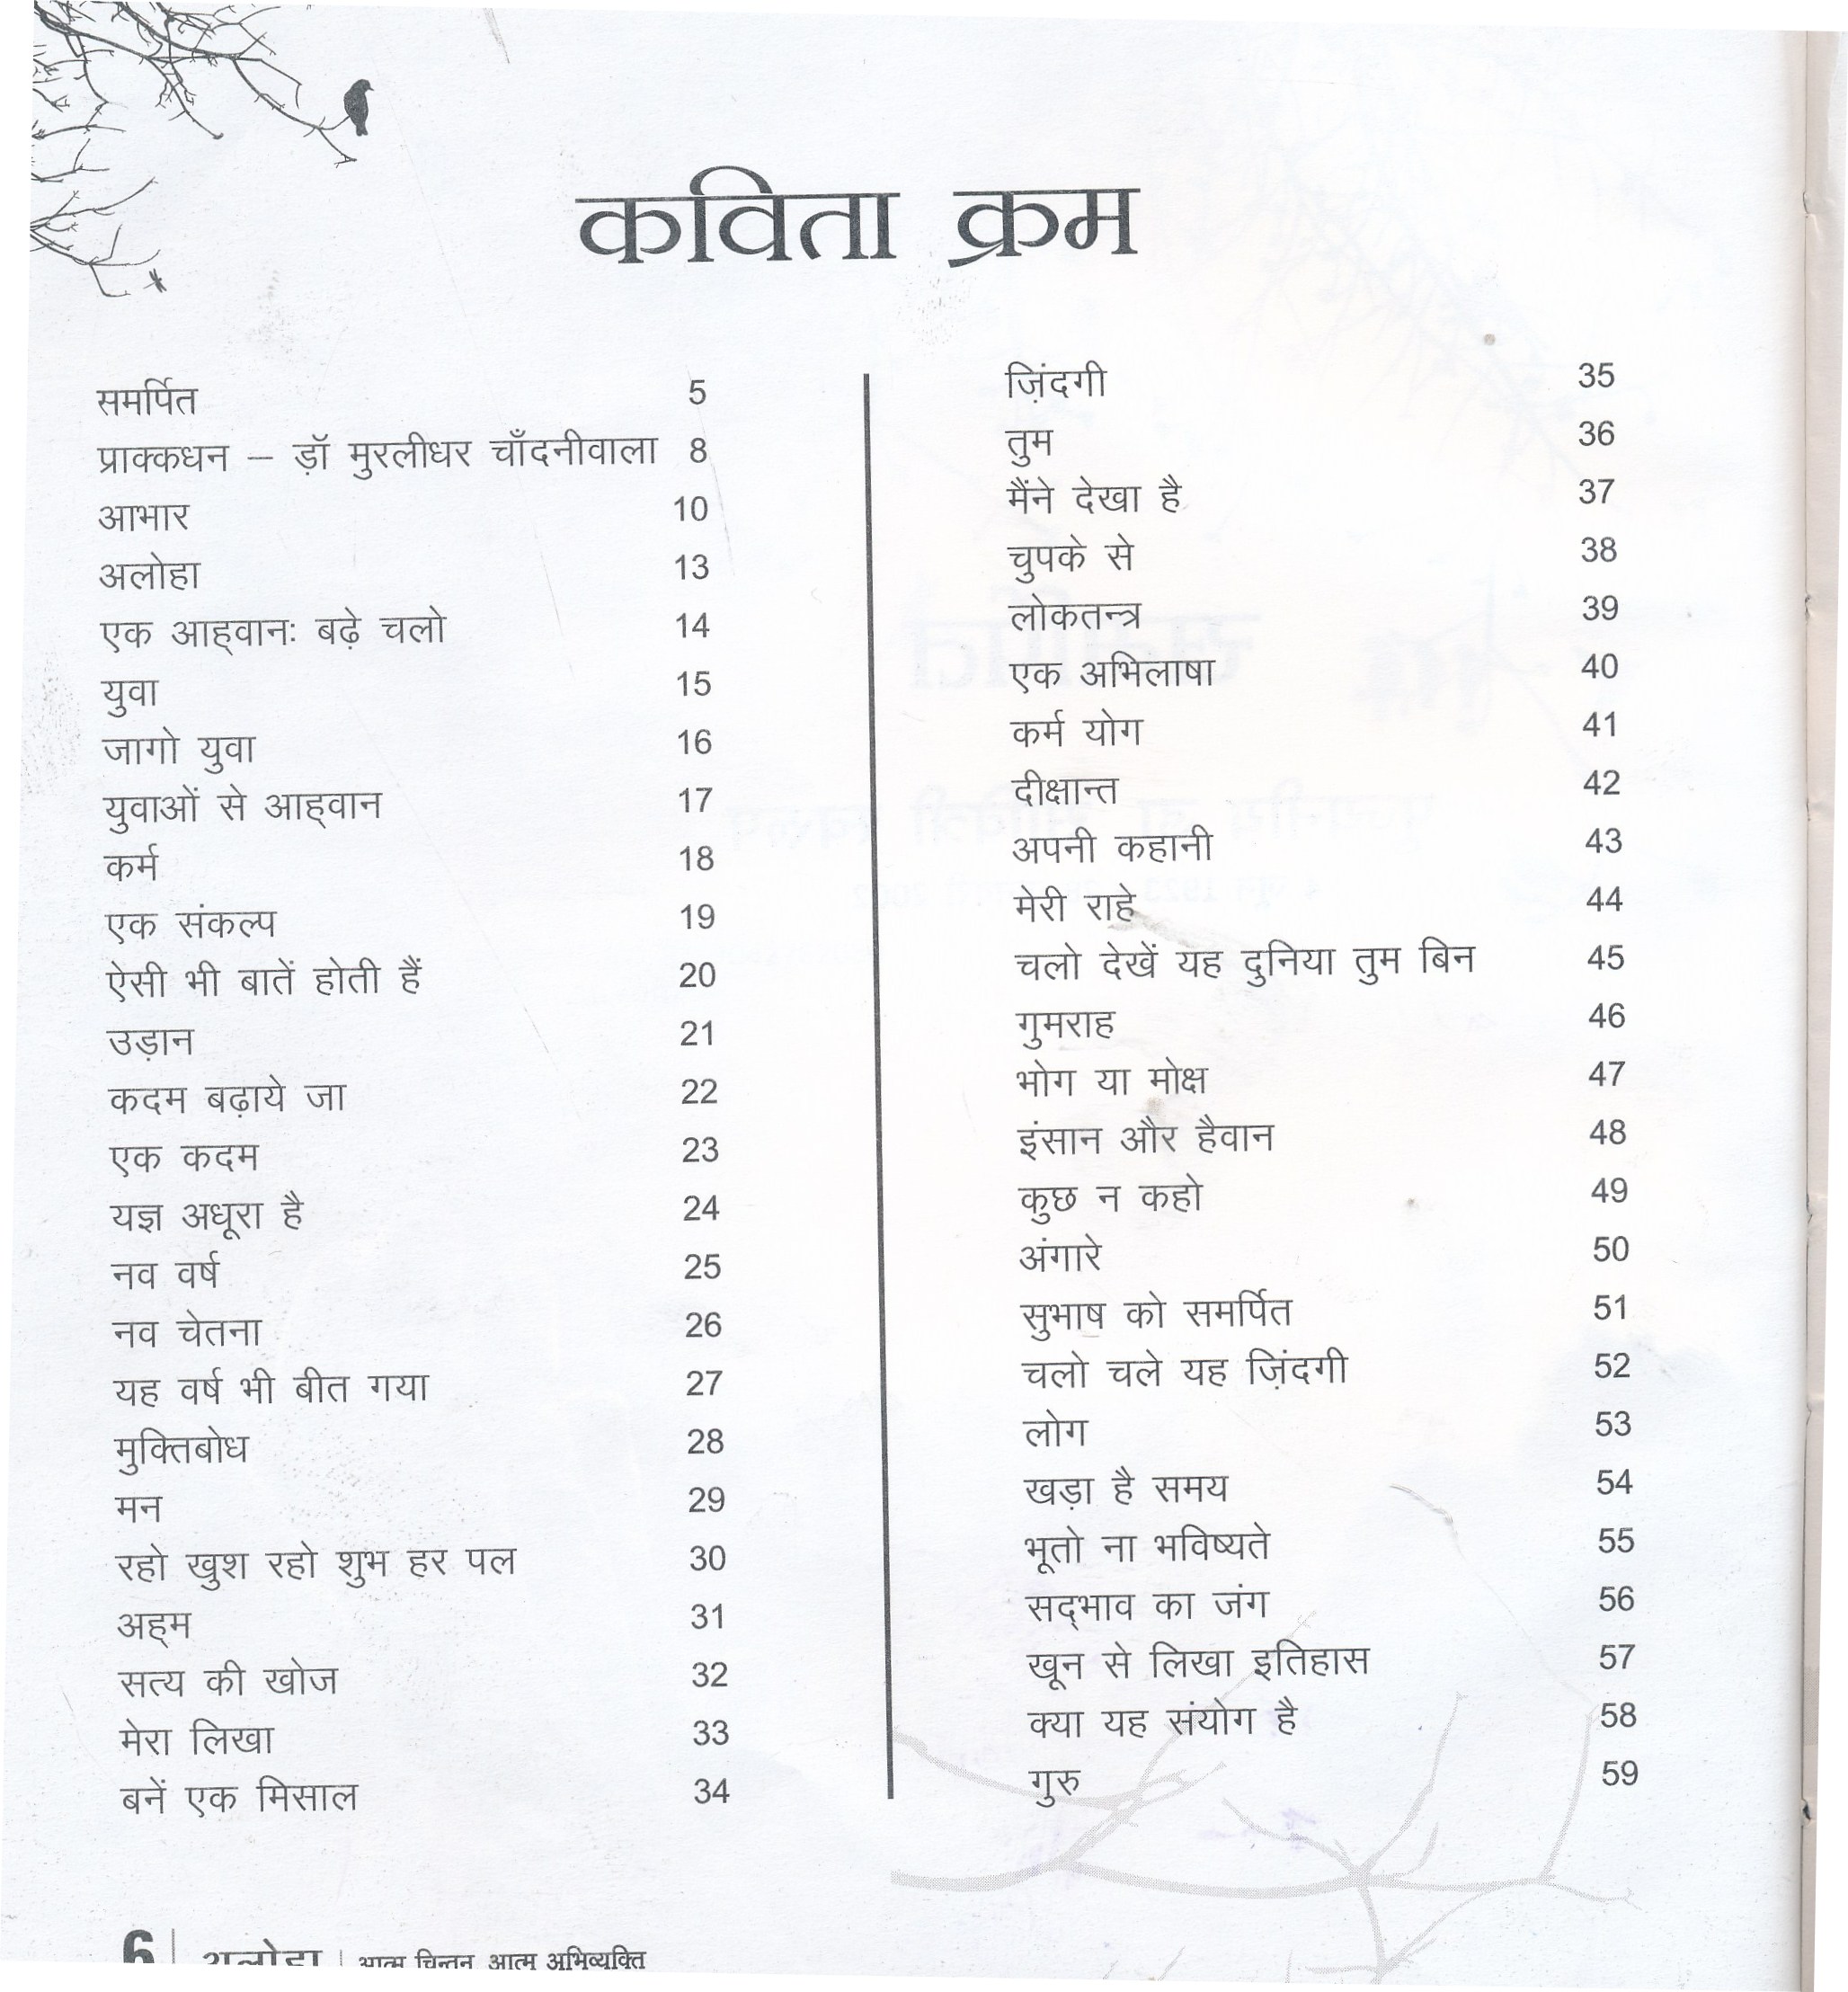 कविता क्रम
समर्पित 5
प्राक्कधन – ड़ॉ मुरलीधर चाँदनीवाला 8
आभार 10
अलोहा 13
एक आह्वानः बढ़े चलो 14
युवा 15
जागो युवा 16
युवाओं से आह्वान 17
कर्म 18
एक संकल्प 19
ऐसी भी बातें होती हैं 20
उड़ान 21
कदम बढ़ाये जा 22
एक कदम 23
यज्ञ अधूरा है 24
नव वर्ष 25
नव चेतना 26
यह वर्ष भी बीत गया 27
मुक्तिबोध 28
मन 29
रहो खुश रहो शुभ हर पल 30
अह्म 31
सत्य की खोज 32
मेरा लिखा 33
बनें एक मिसाल 34
ज़िंदगी 35
तुम 36
मैंने देखा है 37
चुपके से 38
लोकतन्त्र 39
एक अभिलाषा 40
कर्म योग 41
दीक्षान्त 42
अपनी कहानी 43
मेरी राहे 44
चलो देखें यह दुनिया तुम बिन 45
गुमराह 46
भोग या मोक्ष 47
इंसान और हैवान 48
कुछ न कहो 49
अंगारे 50
सुभाष को समर्पित 51
चलो चले यह ज़िंदगी 52
लोग 53
खड़ा है समय 54
भूतो ना भविष्यते 55
सद्भाव का जंग 56
खून से लिखा इतिहास 57
क्या यह संयोग है 58
गुरु 59
6 | अलोहा | आत्म चिन्तन आत्म अभिव्यक्ति